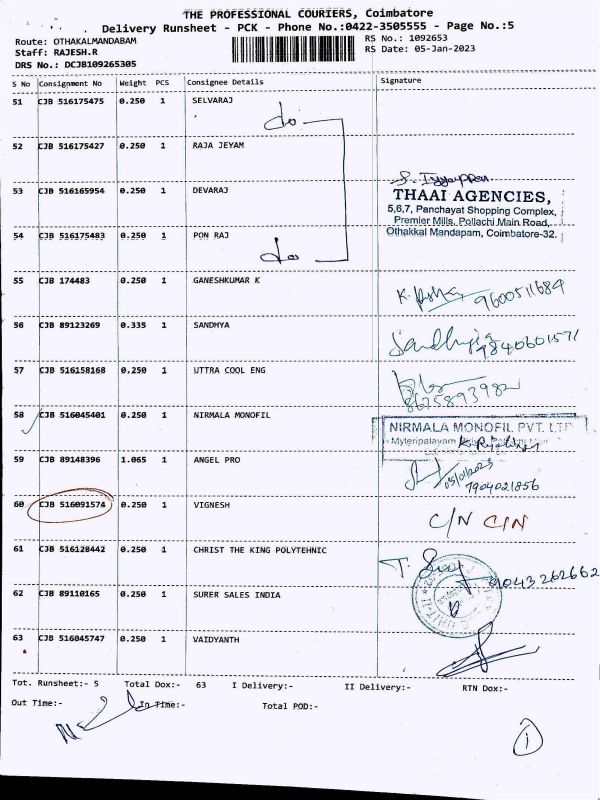 THE PROFESSIONAL COURIERS, Coimbatore
Delivery Runsheet - PCK - Phone No.:0422-3505555 - Page No.:5
Route: OTHAKALMANDABAM
RS No.: 1092653
Staff: RAJESH.R
RS Date: 05-Jan-2023
DRS No.: DCJB109265305
S No Consignment No Weight PCS Consignee Details Signature
51 CJB 516175475 0.250 1 SELVARAJ
do
52 CJB 516175427 0.250 1 RAJA JEYAM
53 CJB 516165954 0.250 1 DEVARAJ
THAAI AGENCIES,
5,6,7, Panchayat Shopping Complex,
Premier Mills, Pollachi Main Road,
Othakkal Mandapam, Coimbatore-32.
54 CJB 516175483 0.250 1 PON RAJ
do
55 CJB 174483 0.250 1 GANESHKUMAR K
9600511684
56 CJB 89123269 0.335 1 SANDHYA
Sandhya
9840601571
57 CJB 516158168 0.250 1 UTTRA COOL ENG
8675893982
58 CJB 516045401 0.250 1 NIRMALA MONOFIL
NIRMALA MONOFIL PVT. LTD
Myleripalayam
59 CJB 89148396 1.065 1 ANGEL PRO
05/01/2023
7904021856
60 CJB 516091574 0.250 1 VIGNESH
C/N C/N
61 CJB 516128442 0.250 1 CHRIST THE KING POLYTECHNIC
9043262662
62 CJB 89110165 0.250 1 SURER SALES INDIA
63 CJB 516045747 0.250 1 VAIDYANTH
Tot. Runsheet:- 5 Total Dox:- 63 I Delivery:- II Delivery:- RTN Dox:-
Out Time:- In Time:- Total POD:-
1